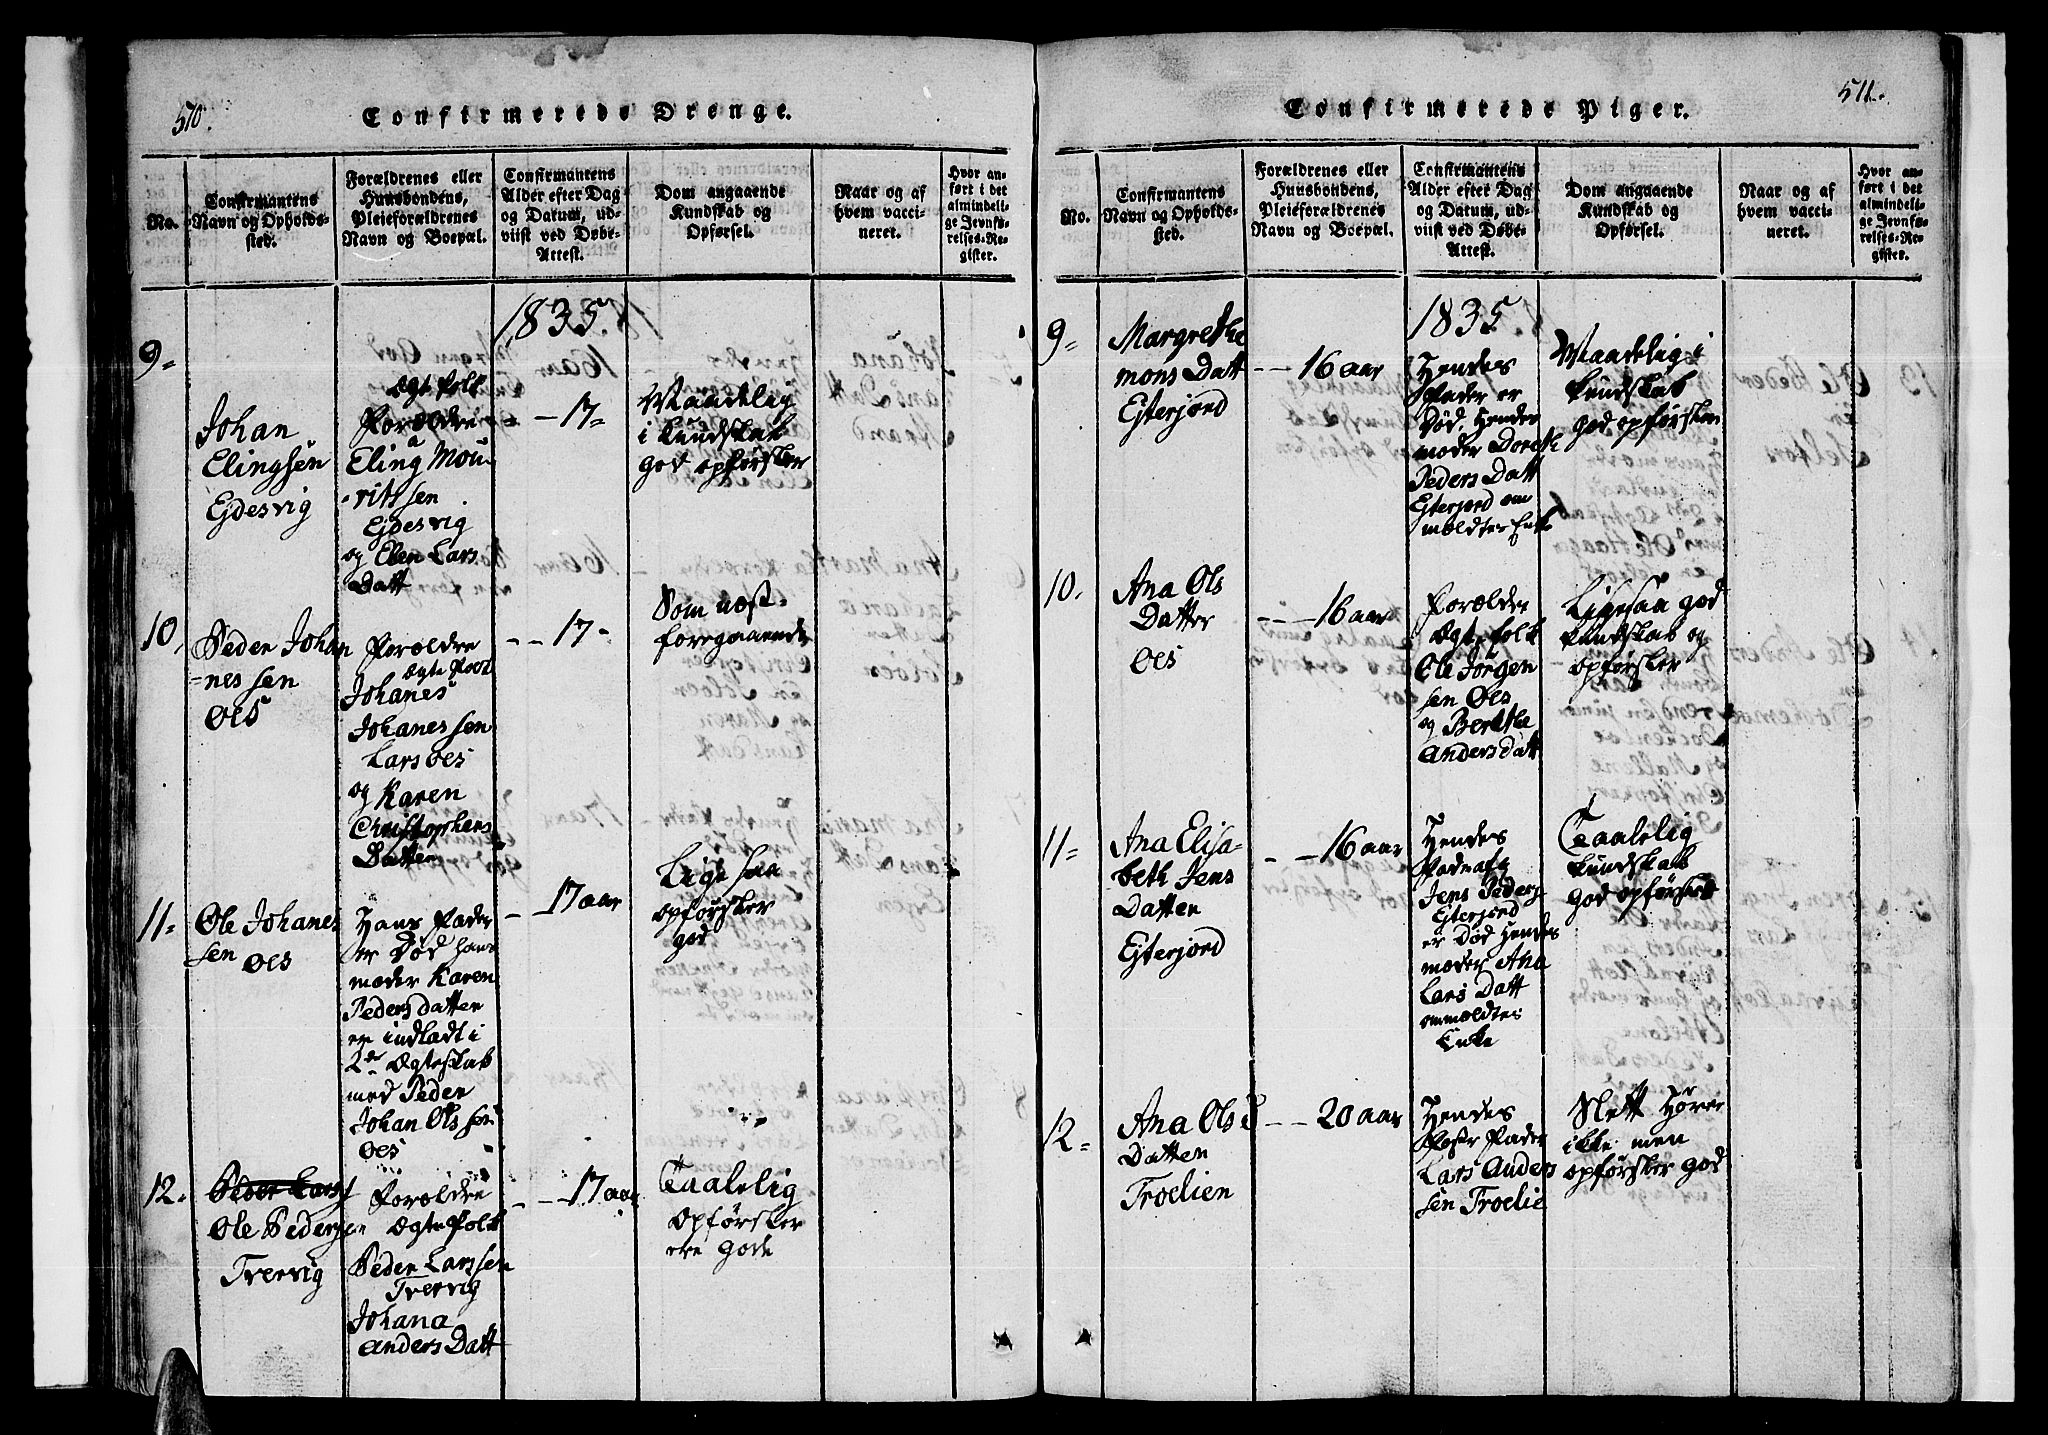 570.
Confirmerede Drenge.
No.
Confirmantens
Navn og Opholds-
sted.
Forældrenes eller
Huusbondens,
Pleieforældrenes
Navn og Boepæl.
Confirmantens
Alder efter Dag
og Datum, ud-
viist ved Døbe-
Attest.
Dom angaaende
Kundskab og
Opførsel.
Naar og af
hvem vacci-
neret.
Hvor an-
ført i det
almindeli-
ge Jevnfø-
relses-Re-
gister.
1835.
9-
Johan
Elingsen
Ejdesvig
Ægtefolk
Forældre
Eling Mou-
ritssen
Ejdesvig
og Elen Lars
Datt
- 17-
Maadelig
i Kundskab
god opførsler
10.
Peder Johan
nes sen
Øes
Forældre
Ægte Folk
Johanes
Johanessen
Lars Øes
og Karen
Christophers
Datter
- - 17-
Som næst-
foregaaende
11-
Ole Johanes
sen
Øes
Hans Fader
er Død hans
moder Karen
Peders datter
er indladt i
2de Ægteskab
med Peder
Johan Ols sen
Øes
- - 17 aar
Lige saa
opførsler
god
12.
Peder Larss
Ole Pedersen
Trervig
Forældre
Ægte Folk
Peder Larssen
Trervig
Johana
Anders Datt
- - 17 aar
Taalelig
opførsler
ere gode
511.
Confirmerede Piger.
No.
Confirmantens
Navn og Opholds-
sted.
Forældrenes eller
Huusbondens,
Pleieforældrenes
Navn og Boepæl.
Confirmantens
Alder efter Dag
og Datum, ud-
viist ved Døbe-
Attest.
Dom angaaende
Kundskab og
Opførsel.
Naar og af
hvem vacci-
neret.
Hvor an-
ført i det
almindeli-
ge Jevnfø-
relses-Re-
gister.
1835.
9-
Margrethe
mons Datt
Ejterjord
- - 16 aar
Hendes
Fader er
Død, Hendes
moder Doreth
Peders Datt
Ejterjord om
mældtes Enke
Maadelig i
Kundskab
god opførsler
10.
Ana Ols
Datter
Øes
- - - 16 aar
Forældre
Ægte folk
Ole Jörgen
sen Øes
og Berethe
Andersdatt
Ligesaa god
Kundskab og
opførsler
11-
Ana Elisa-
beth Jens
Datter
Ejterjord
- - 16 aar
Hendes
Jens Peders
Ejterjord
er Død Hendes
moder Ana
Lars Datt
ommældtes
Enke
Taalelig
Kundskab
god opførsler
12-
Ana Ols
Datter
Troelien
- - 20 aar
Hendes
Fostr Fader
Lars Anders
sen Troelie
Slett Hører
ikke men
opførsler god